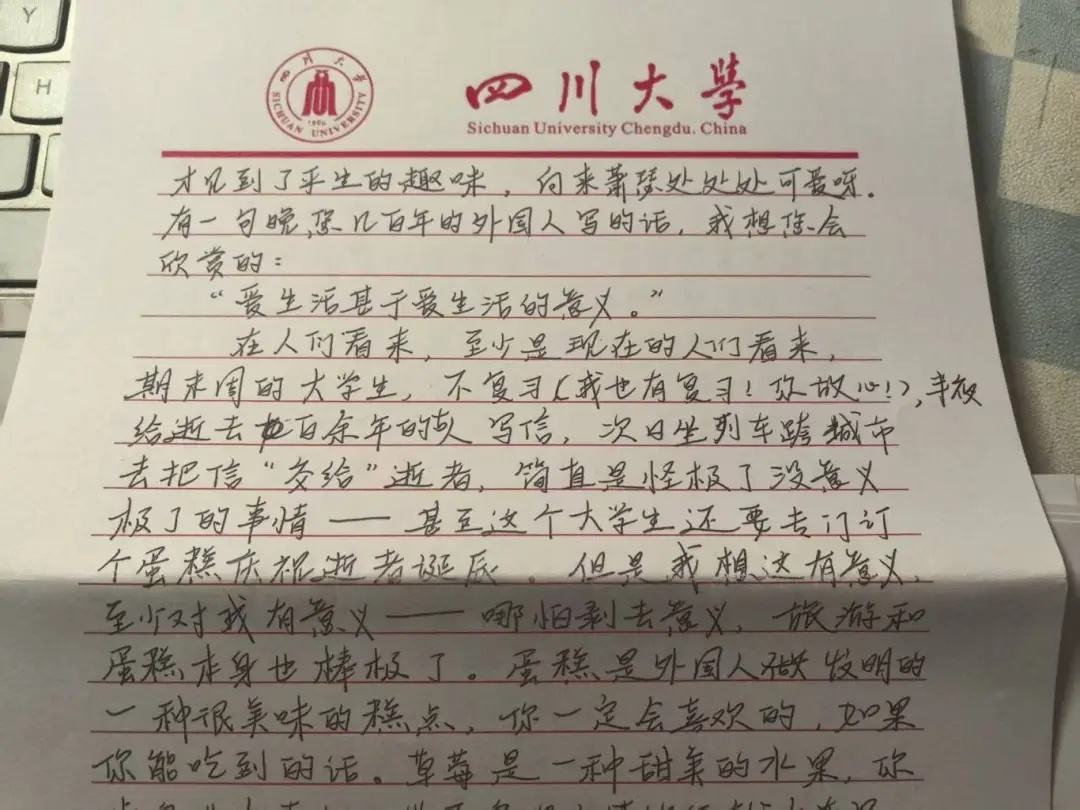 Y
H
四川大学
SICHUAN UNIVERSITY
1896
四川大學
Sichuan University Chengdu. China
才见到了平生的趣味，向来萧瑟处处处可爱呀.
有一句晚您几百年的外国人写的话，我想您会
欣赏的：
“爱生活甚于爱生活的意义。”
在人们看来，至少是现在的人们看来，
期末周的大学生，不复习（我也有复习！你放心！），半夜
给逝去百余年的人写信，次日坐列车跨城市
去把信“交给”逝者，简直是怪极了没意义
极了的事情——甚至这个大学生还要专门订
个蛋糕庆祝逝者诞辰。但是我想这有意义，
至少对我有意义——哪怕剥去意义，旅游和
蛋糕本身也棒极了。蛋糕是外国人发明的
一种很美味的糕点，你一定会喜欢的，如果
你能吃到的话。草莓是一种甜美的水果，你